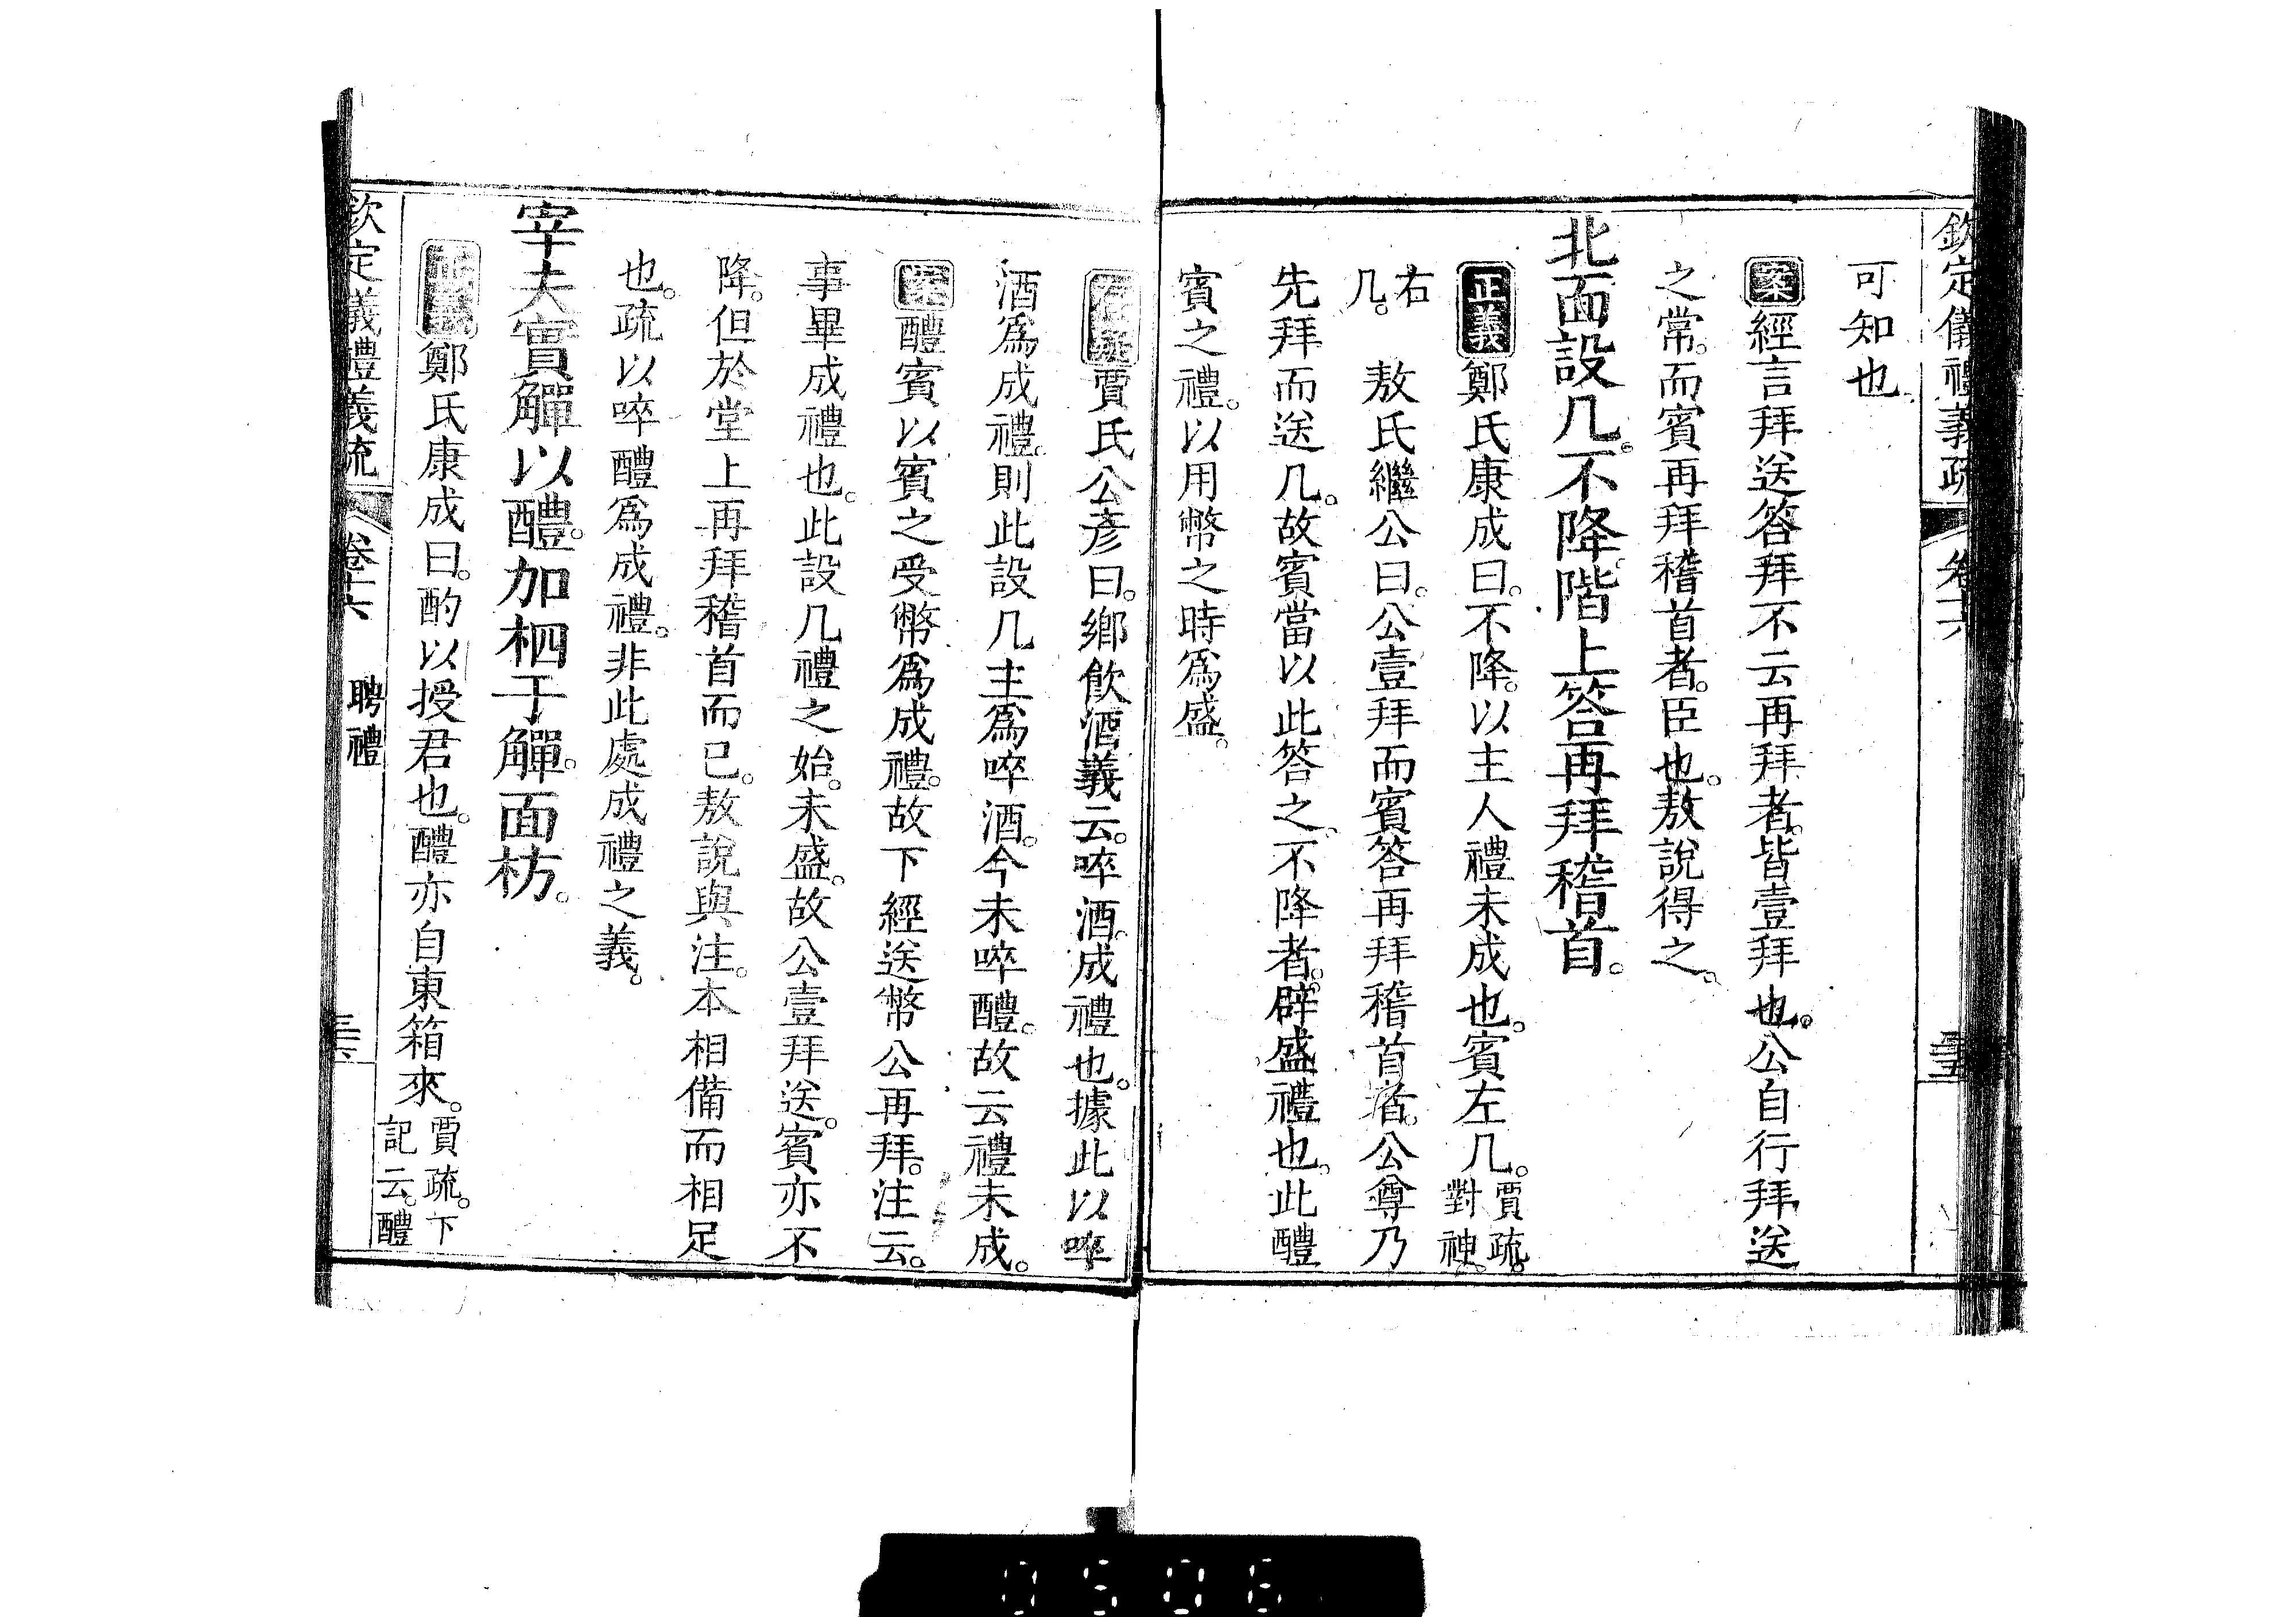 欽定儀禮義疏 卷十六 三五
可知也
案經言拜送答拜不云再拜者。皆壹拜也。公自行拜送
之常。而賓再拜稽首者。臣也。敖說得之。
北面設几。不降。階上答再拜稽首。
正義鄭氏康成曰。不降。以主人禮未成也。賓左几。賈疏。對神
右几。 敖氏繼公曰。公壹拜而賓答再拜稽首者。公尊乃
先拜而送几。故賓當以此答之。不降者。辟盛禮也。此醴
賓之禮。以用幣之時爲盛。
存疑賈氏公彥曰。鄉飲酒義云。啐酒。成禮也。據此以啐
酒爲成禮。則此設几主爲啐酒。今未啐醴。故云禮未成。
案醴賓以賓之受幣爲成禮。故下經送幣公再拜。注云。
事畢成禮也。此設几禮之始。未盛。故公壹拜送。賓亦不
降。但於堂上再拜稽首而已。敖說與注。本相備而相足
也。疏以啐醴爲成禮。非此處成禮之義。
宰夫實觶以醴。加柶于觶。面枋。
正義鄭氏康成曰。酌以授君也。醴亦自東箱來。賈疏。下記云。醴
欽定義禮義疏 卷十六 聘禮
0506